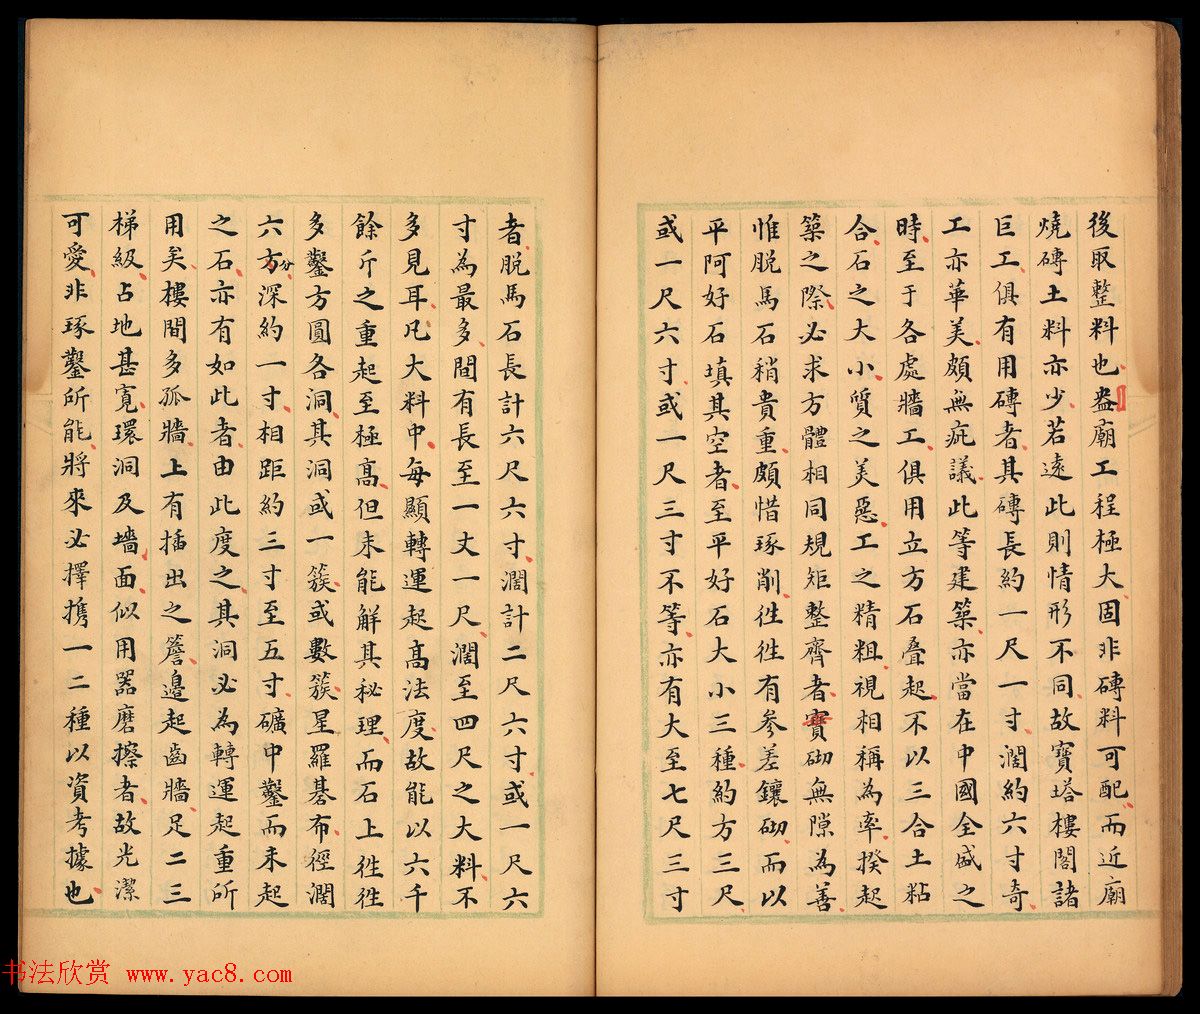 後取整料也盎廟工程極大固非磚料可配而近廟
燒磚土料亦少若遠此則情形不同故寶塔樓閣諸
巨工俱有用磚者其磚長約一尺一寸濶約六寸奇
工亦華美頗無疵議此等建築亦當在中國全盛之
時至于各處牆工俱用立方石叠起不以三合土粘
合石之大小質之美惡工之精粗視相稱為率揆起
築之際必求方體相同規矩整齊者寶砌無隙為善
惟脫馬石稍貴重頗惜琢削徃徃有參差鑲砌而以
平阿好石填其空者至平好石大小三種約方三尺
或一尺六寸或一尺三寸不等亦有大至七尺三寸
者脫馬石長計六尺六寸濶計二尺六寸或一尺六
寸為最多間有長至一丈一尺濶至四尺之大料不
多見耳凡大料中每顯轉運起高法度故能以六千
餘斤之重起至極高但未能解其秘理而石上徃徃
多鑿方圓各洞其洞或一簇或數簇星羅碁布徑濶
六方分深約一寸相距約三寸至五寸礦中鑿而未起
之石亦有如此者由此度之其洞必為轉運起重所
用矣樓間多孤牆上有插出之簷邊起齒牆足二三
梯級占地甚寬環洞及墻面似用器磨擦者故光潔
可愛非琢鑿所能將來必擇携一二種以資考據也
书法欣赏 www.yac8.com